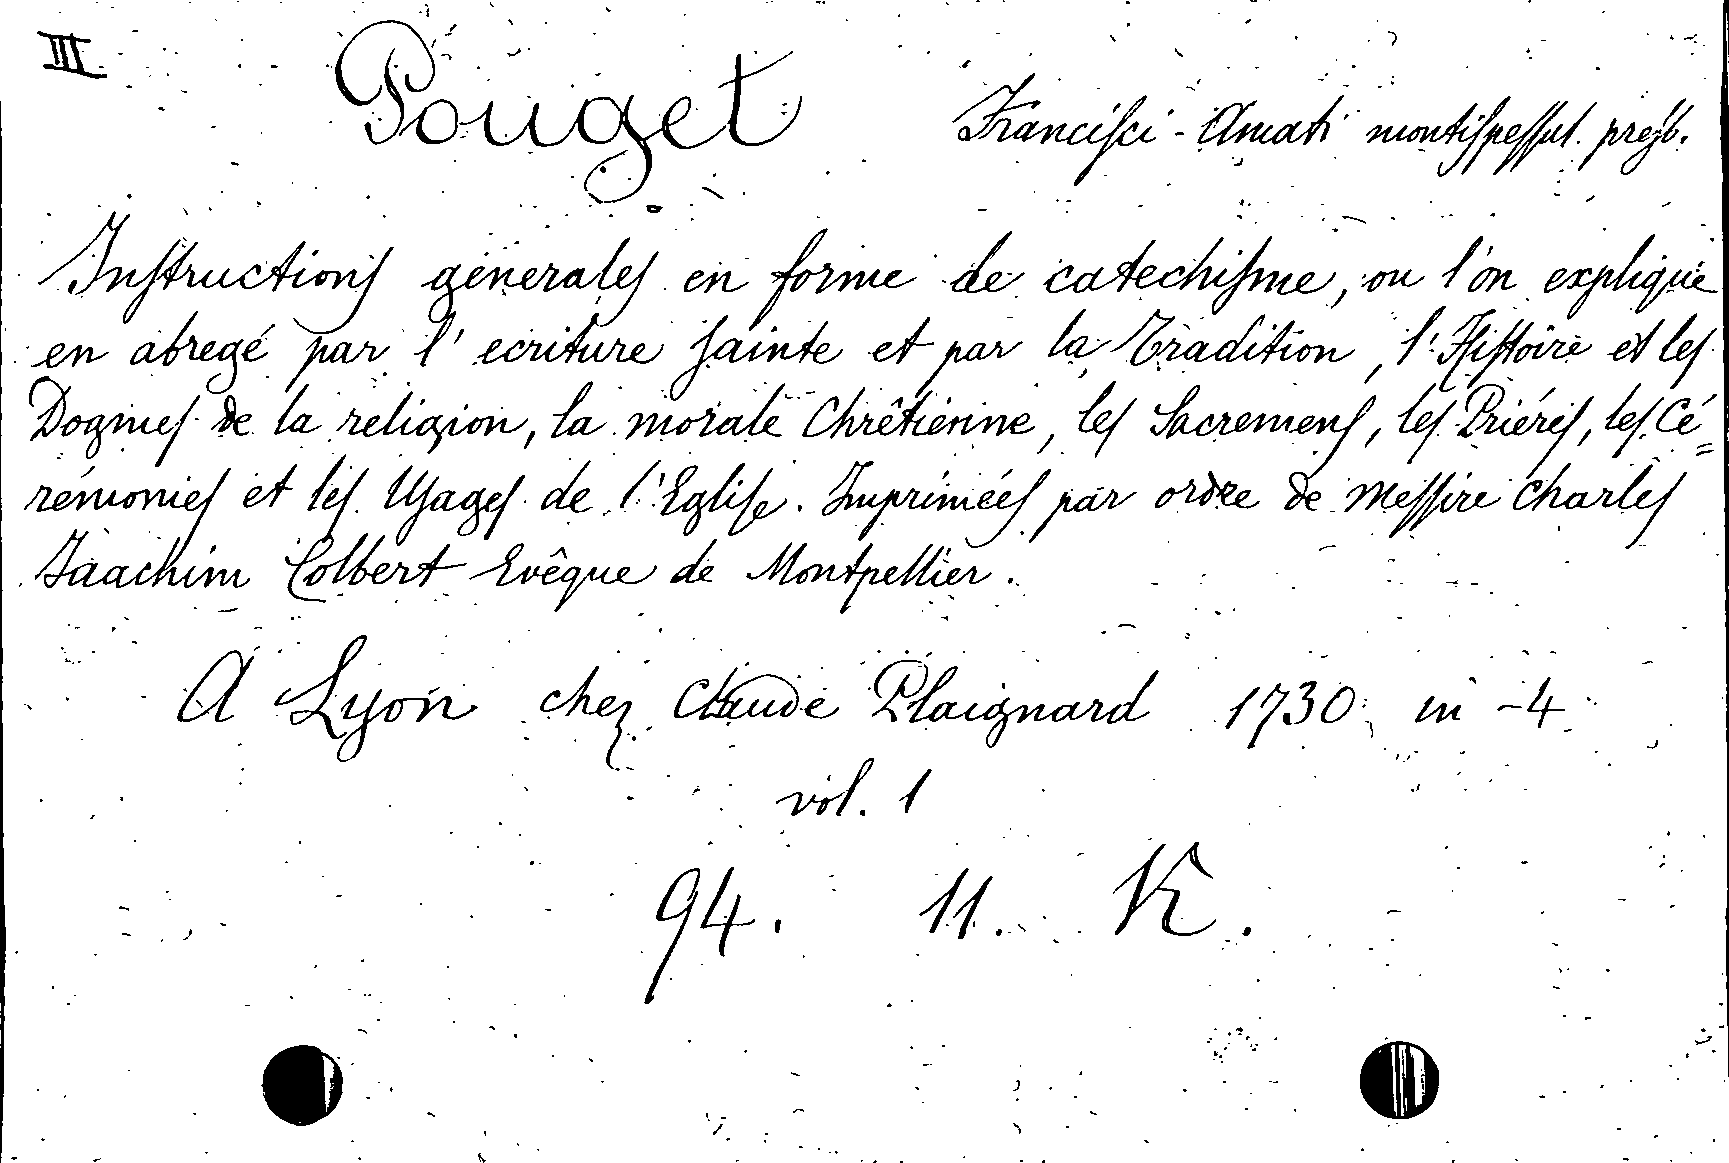 III
Pouget Francisci-Amati montispessul. presb.
Instructions génerales en forme de catechisme, ou l'on explique
en abregé par l'ecriture sainte et par la Tradition, l'Histoire et les
Dogmes de la religion, la morale Chrêtienne, les Sacremens, les Priéres, les Cé=
rémonies et les Usages de l'Eglise. Imprimées par ordre de Messire Charles
Jaachim Colbert Evêque de Montpellier.
A Lyon chez Claude Plaignard 1730 in-4
vol. 1
94. 11. K.